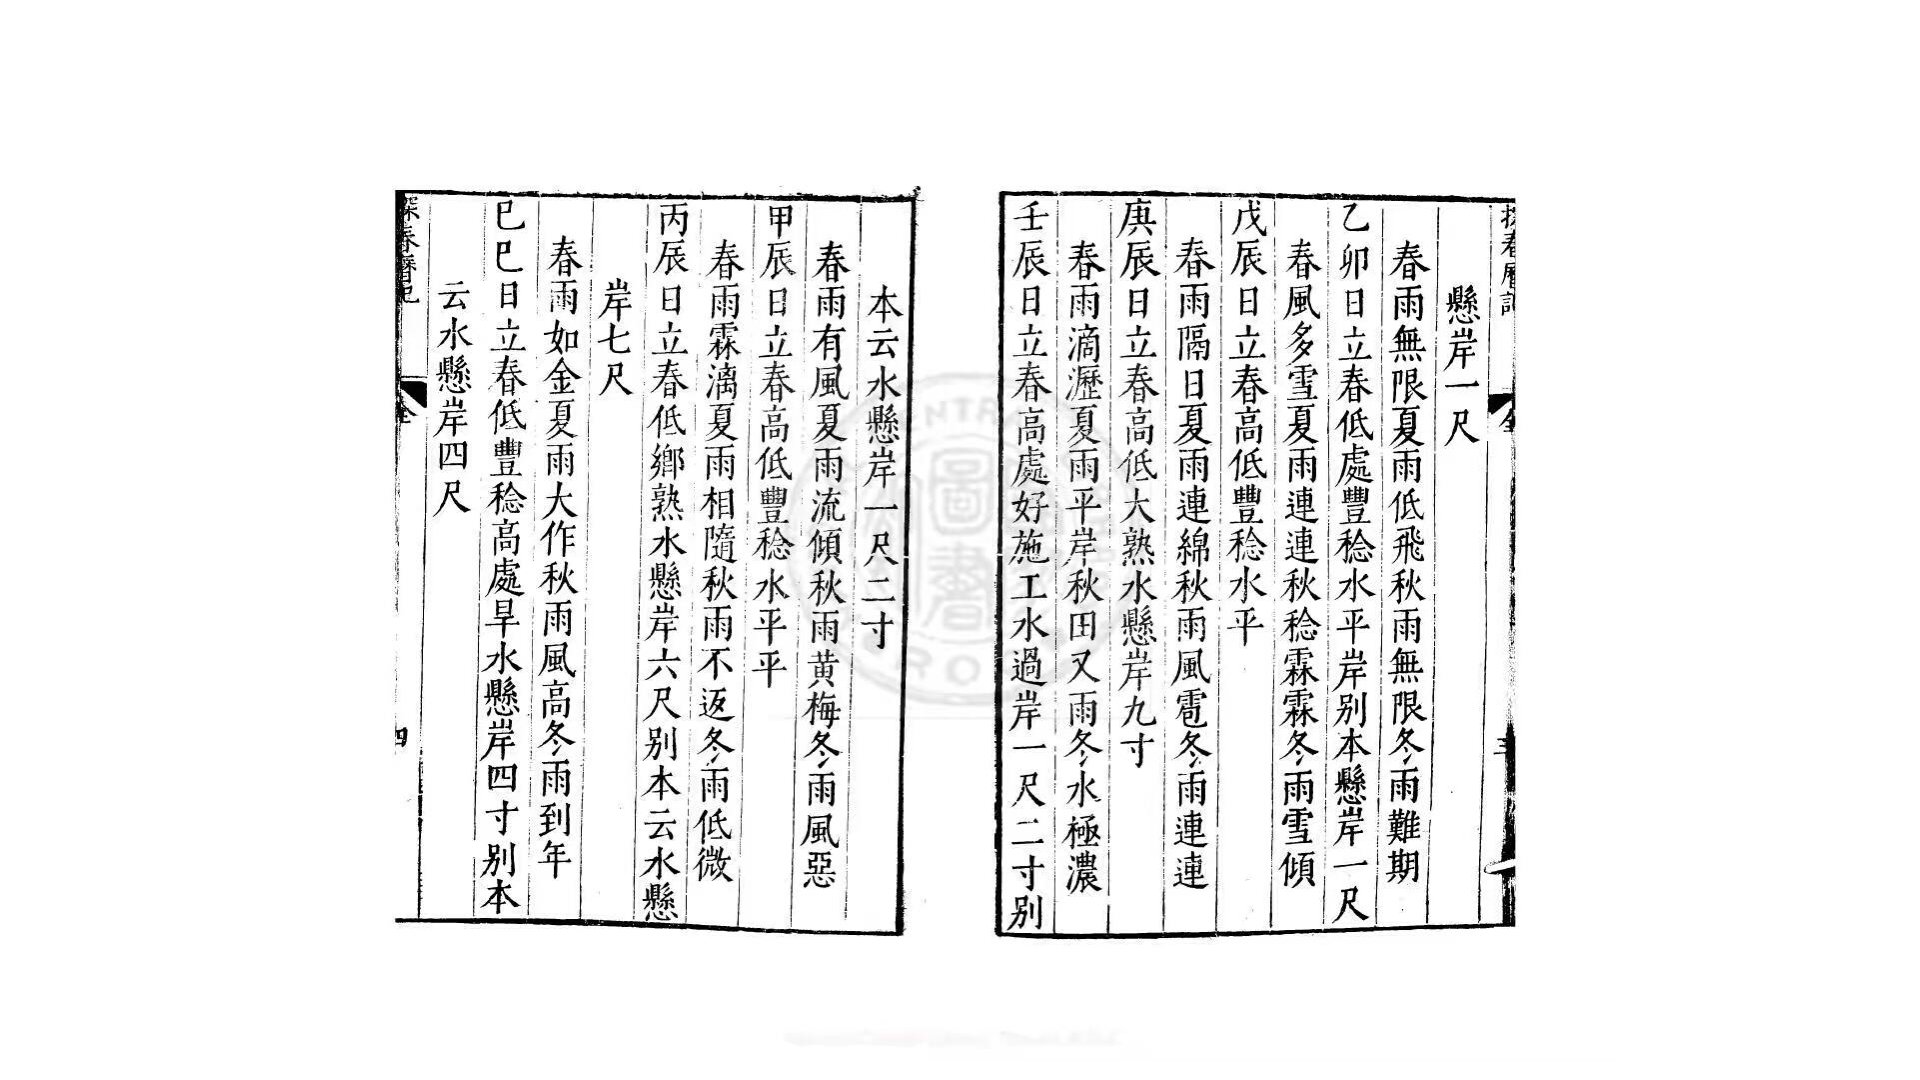 探春曆記
全
三
懸岸一尺
春雨無限夏雨低飛秋雨無限冬雨難期
乙卯日立春低處豐稔水平岸别本懸岸一尺
春風多雪夏雨連連秋稔霖霖冬雨雪傾
戊辰日立春高低豐稔水平
春雨隔日夏雨連綿秋雨風雹冬雨連連
庚辰日立春高低大熟水懸岸九寸
春雨滴瀝夏雨平岸秋田又雨冬水極濃
壬辰日立春高處好施工水過岸一尺二寸别
本云水懸岸一尺二寸
春雨有風夏雨流傾秋雨黄梅冬雨風惡
甲辰日立春高低豐稔水平平
春雨霖漓夏雨相隨秋雨不返冬雨低微
丙辰日立春低鄉熟水懸岸六尺别本云水懸
岸七尺
春雨如金夏雨大作秋雨風高冬雨到年
巳巳日立春低豐稔高處旱水懸岸四寸别本
云水懸岸四尺
探春曆記
全
四
圖書
CENTRA
R.O.